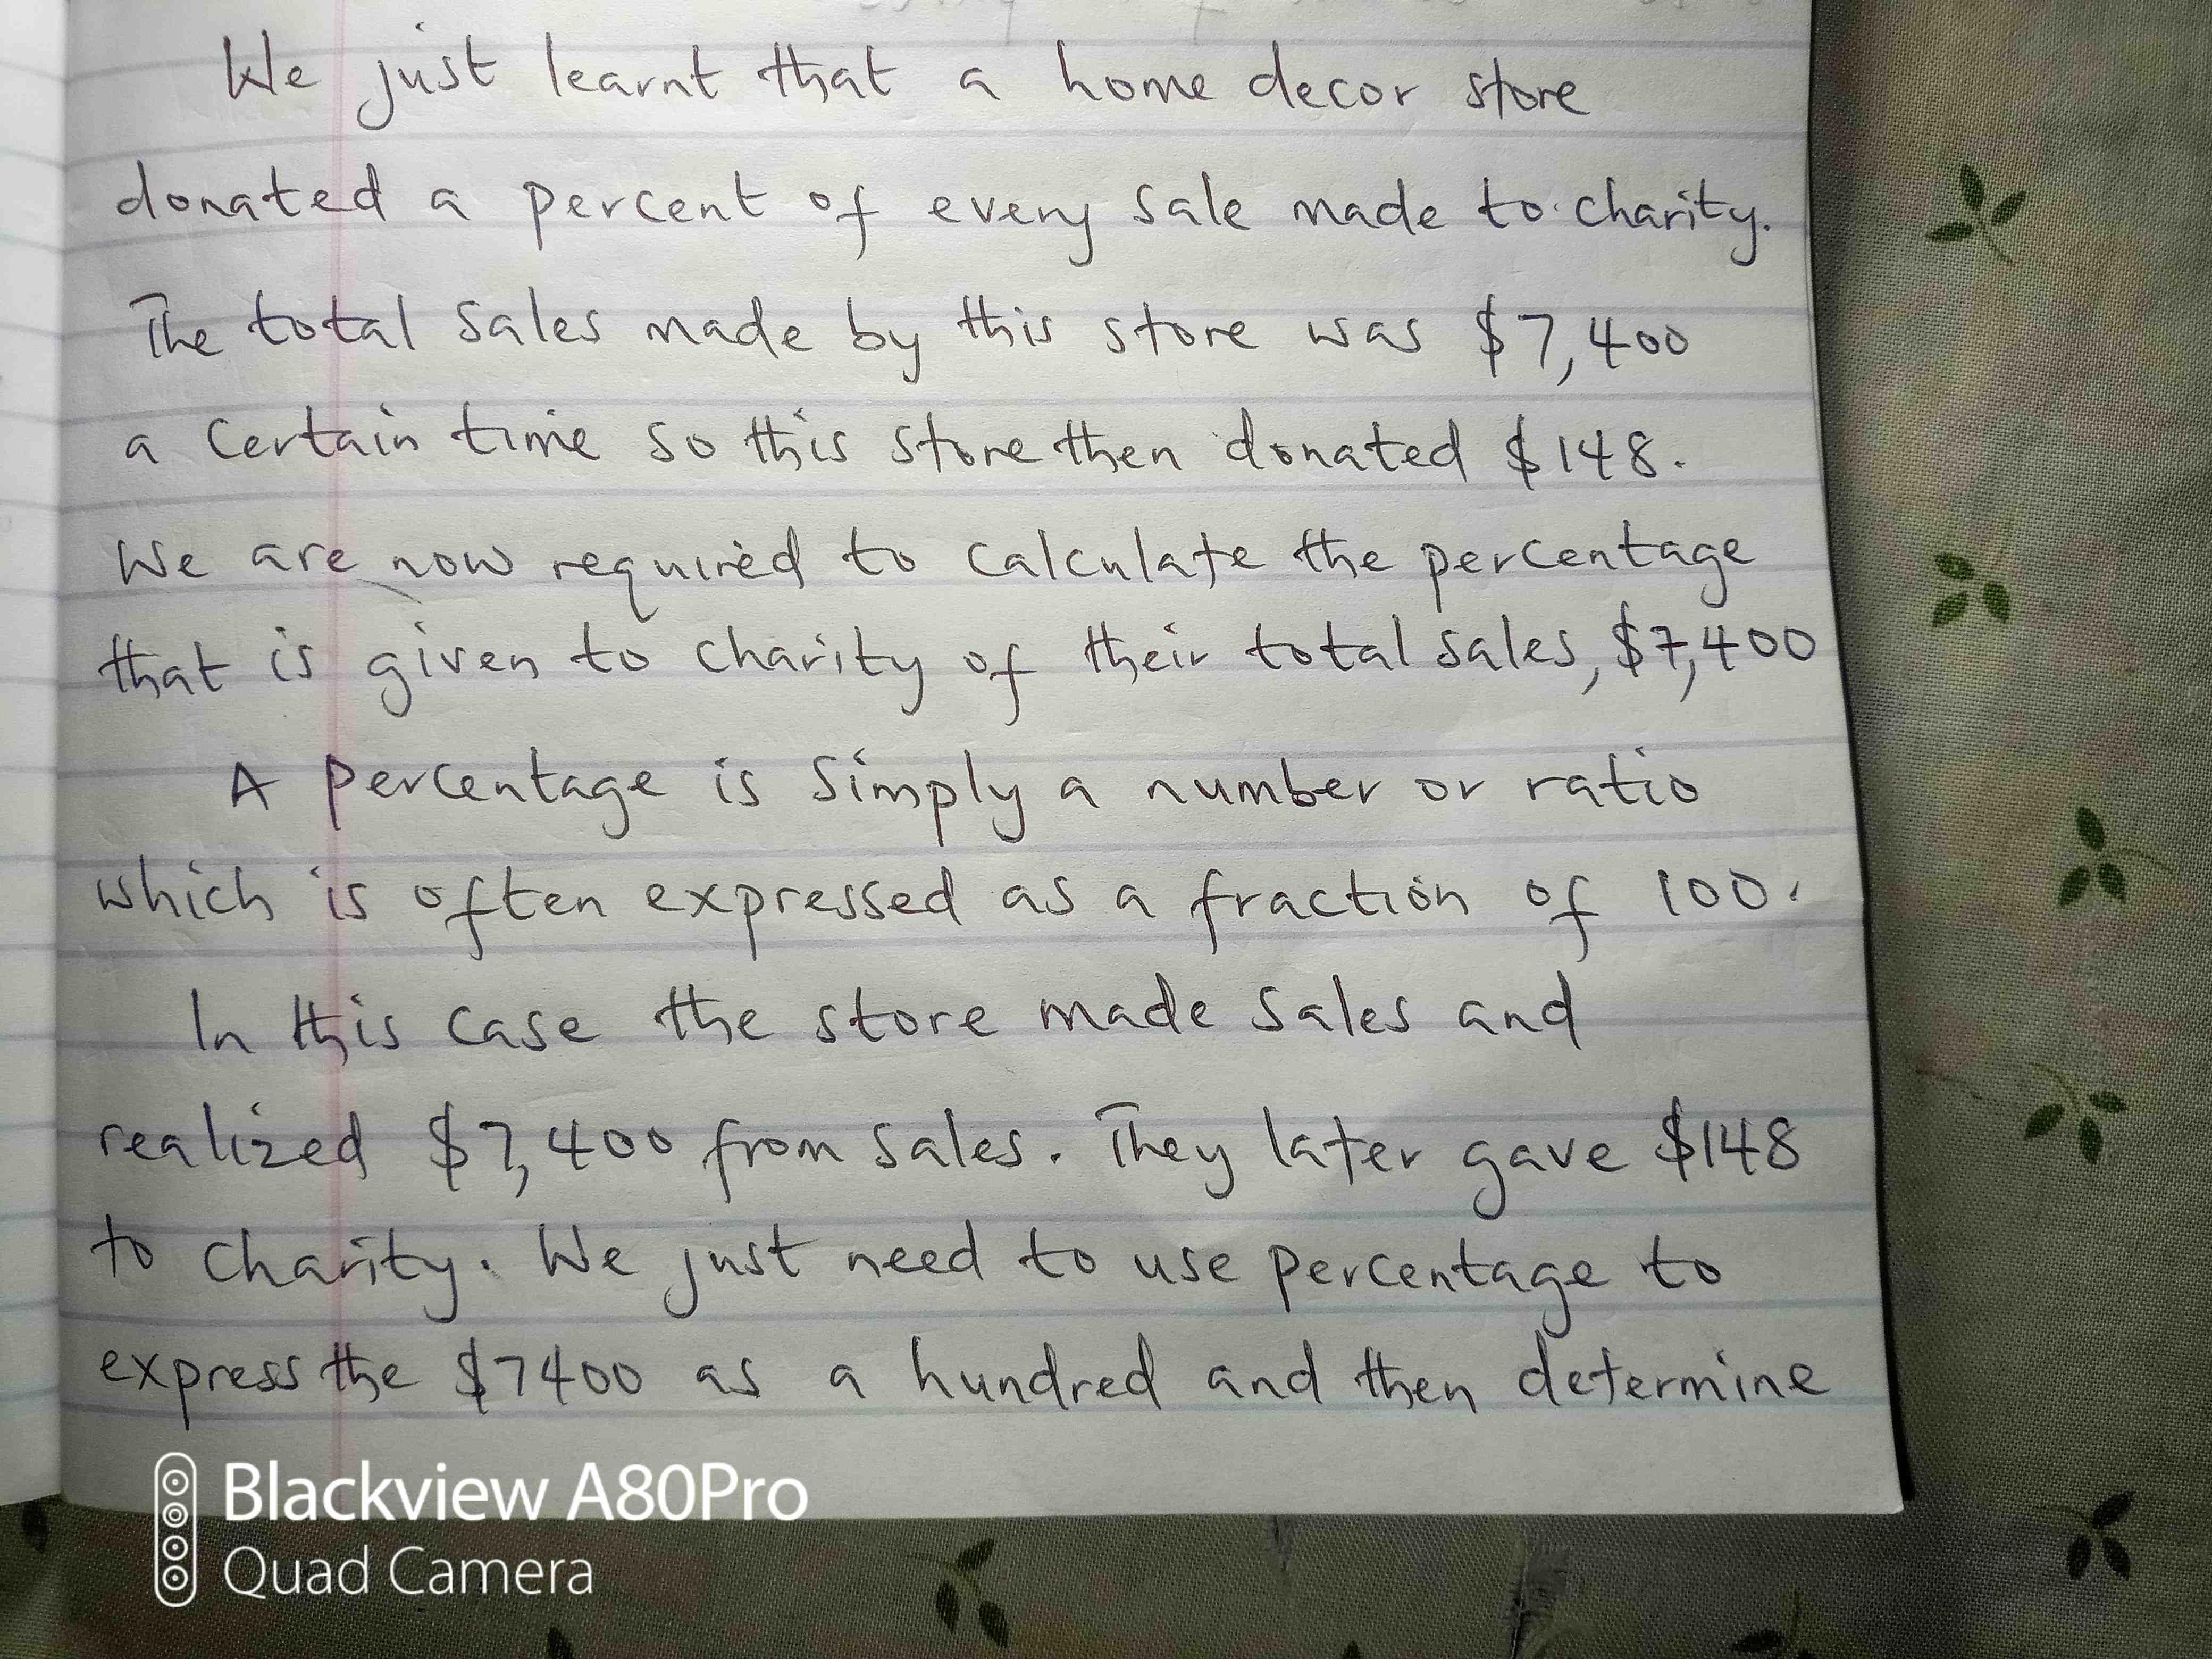 We just learnt that a home decor store
donated a percent of every sale made to charity.
The total sales made by this store was $7,400
a certain time so this store then donated $148.
We are now required to calculate the percentage
that is given to charity of their total sales, $7,400
A percentage is simply a number or ratio
which is often expressed as a fraction of 100.
In this case the store made sales and
realized $7,400 from sales. They later gave $148
to charity. We just need to use percentage to
express the $7400 as a hundred and then determine
Blackview A80Pro
Quad Camera